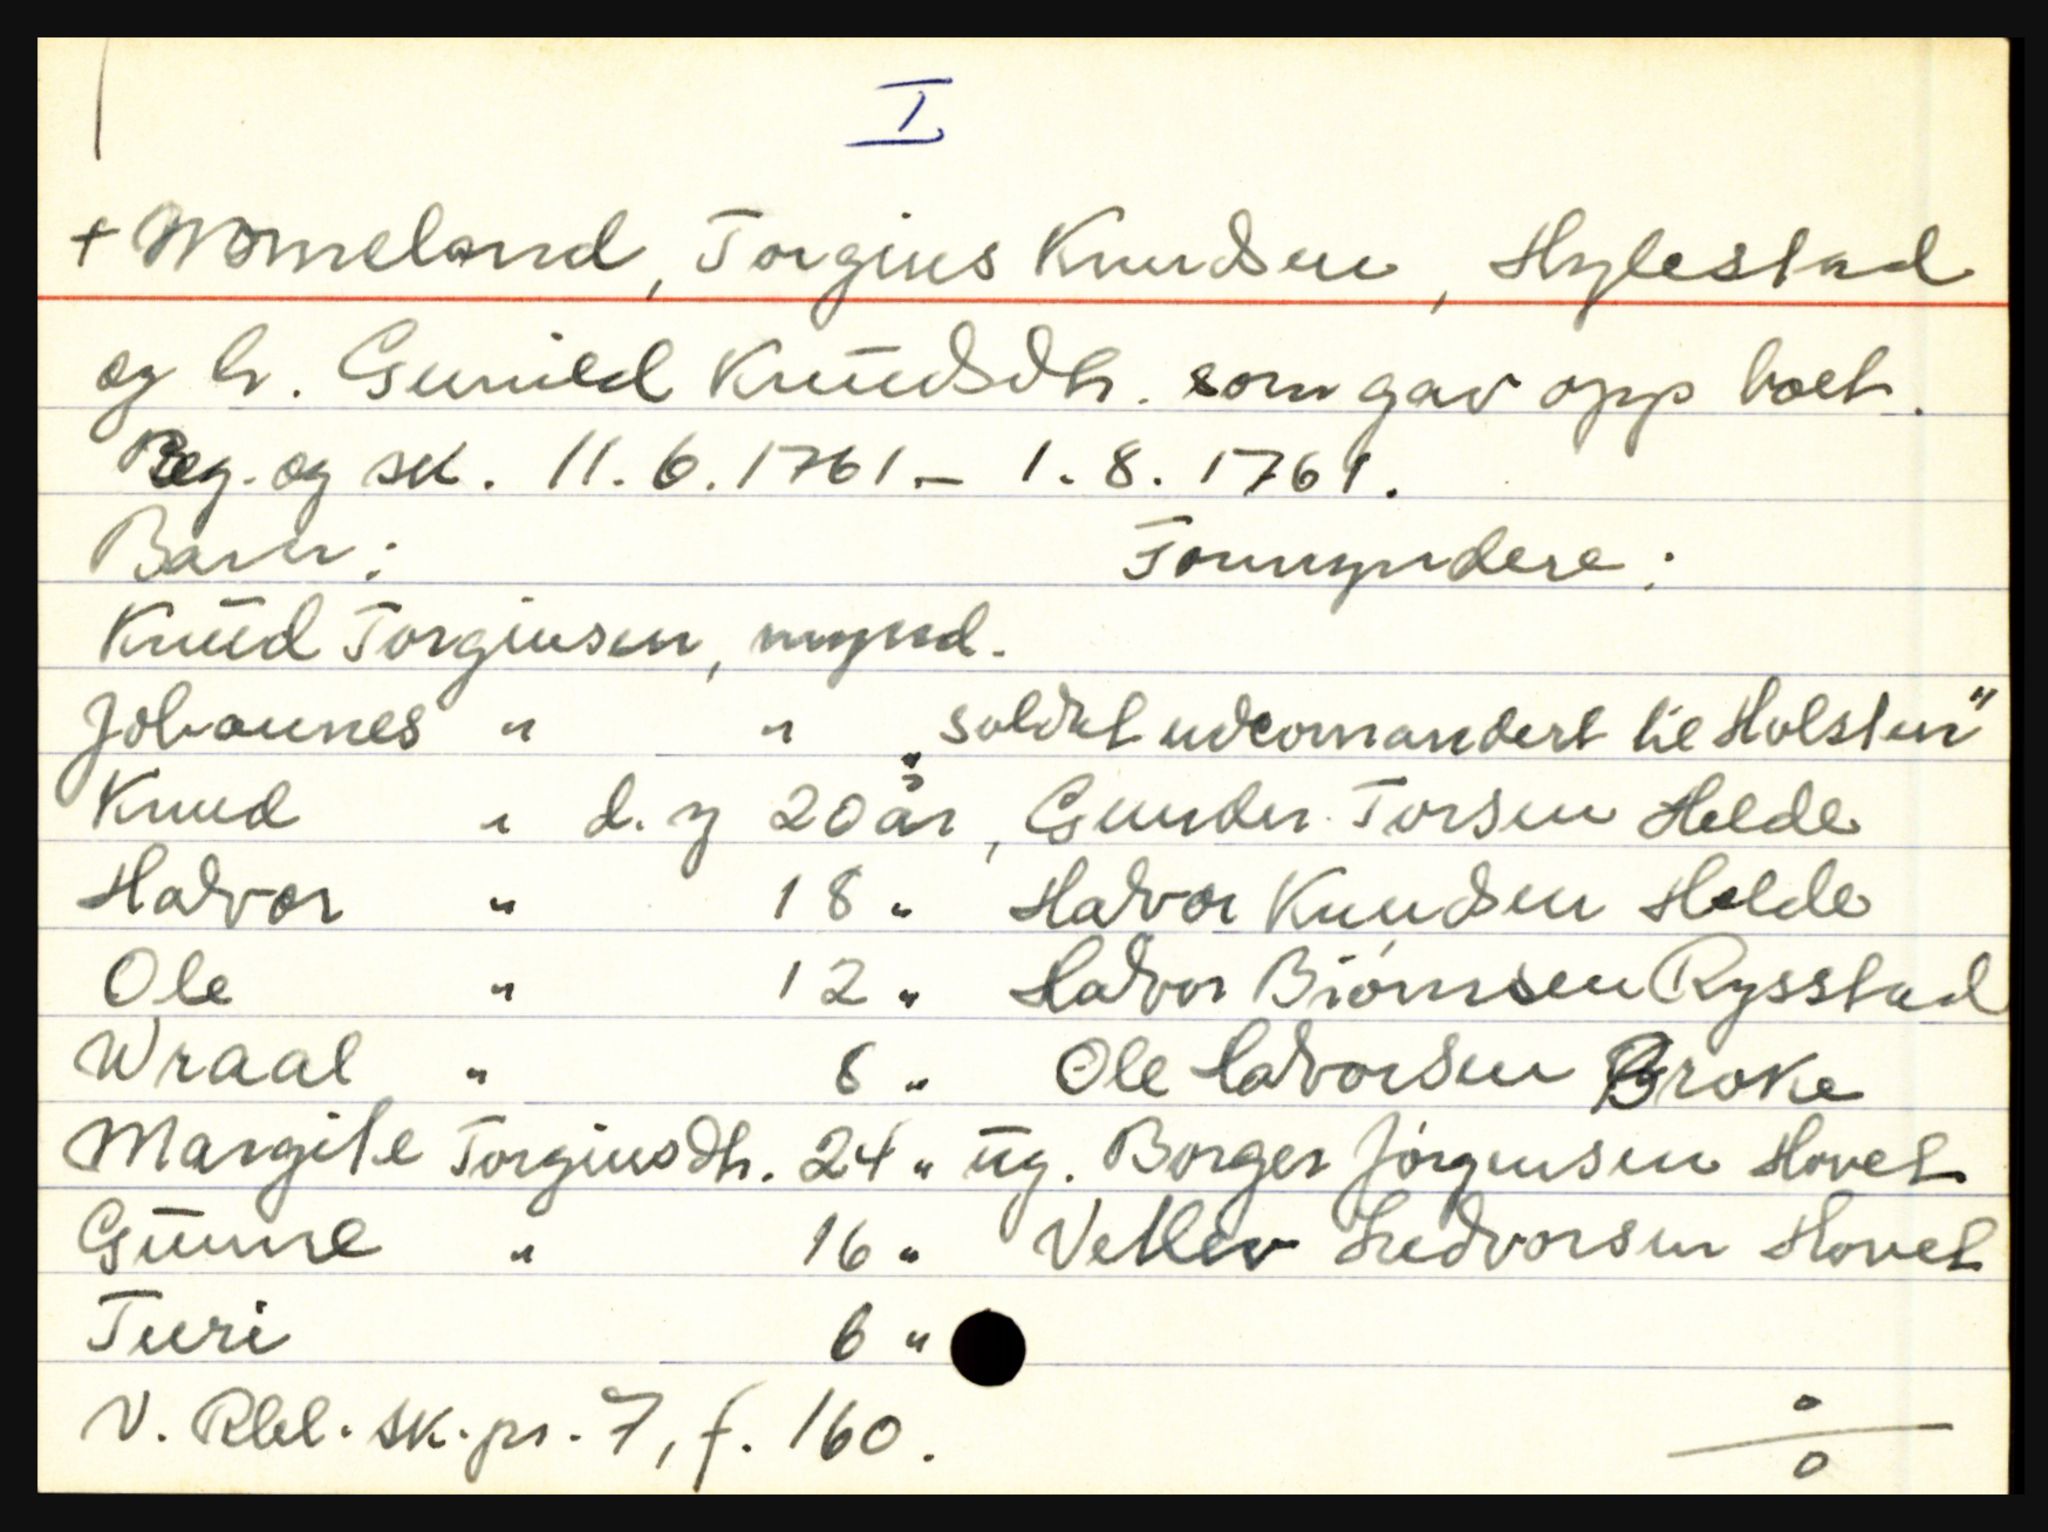 I
+ Momeland, Torgius Knudsen, Hylestad
og h. Gunild Knudsdtr. som gav opp boet.
Reg. og sk. 11.6.1761 - 1.8.1761.
Barn: Formyndere:
Knud Torgiusen, mynd.
Johannes " " „soldat udcomandert til Holsten"
Knud " d. y 20 år, Gunder Torsen Helde
Halvor " 18 " Halvor Knudsen Helde
Ole " 12 " Halvor Biørnsen Rysstad
Wraal " 8 " Ole Halvorsen Broke
Margite Torgiusdtr. 24 " ug. Borger Jørgensen Hovet
Gunne " 16 " Vetlev Hedvorsen Hovet
Turi 6 "
V. Rbl. sk. pr. 7, f. 160.